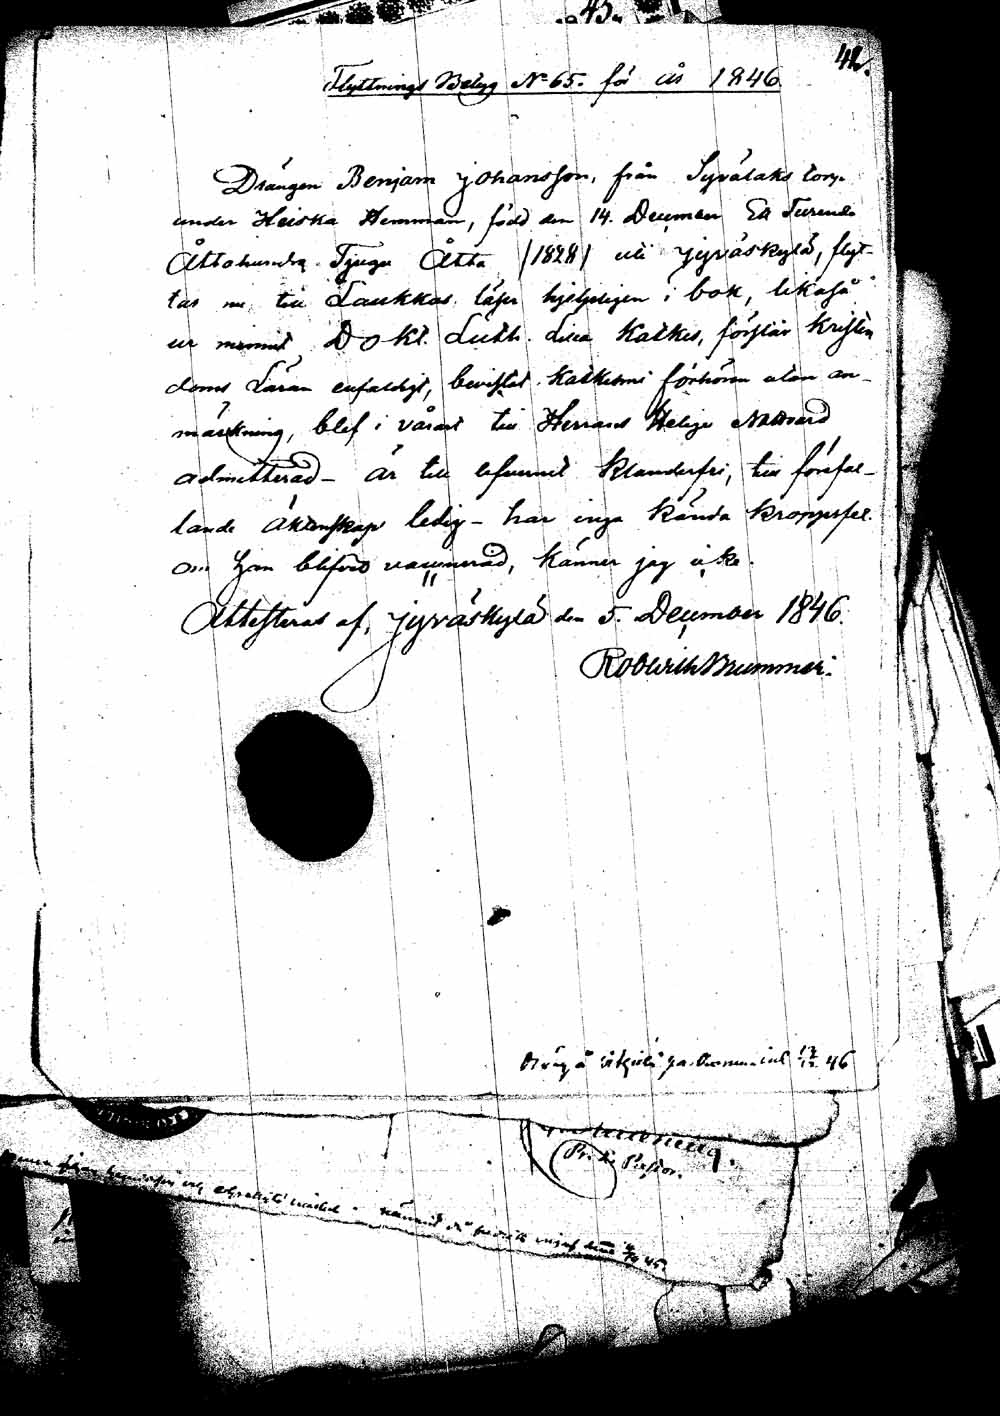 43.
42.
Flyttnings Betyg No 65. för år 1846.
Drängen Benjam Johansson, från Syvälaks torp
under Heiska Hemman, född den 14. December Ett Tusende
Åttahundra Tjugu Åtta /1828/ uti Jyväskylä, flyt-
tar nu till Laukkas läser hjelpligen i bok, likaså
ur minnet Dokt. Luth. Lilla Katkes, förstår Kristen
doms Läran enfaldigt, bevistat Katkesmi förhören utan an-
märkning, blef i våras till Herrans Helige Nattvard
admitterad - är till lefvernet klanderfri, till förefal-
lande äktenskap ledig - har inga kända kroppsfel.
om han blifvit vaccinerad, känner jag icke.
Attesteras af, Jyväskylä den 5. December 1846.
Rob Wilh Brummer.
46
Pastor.
45.